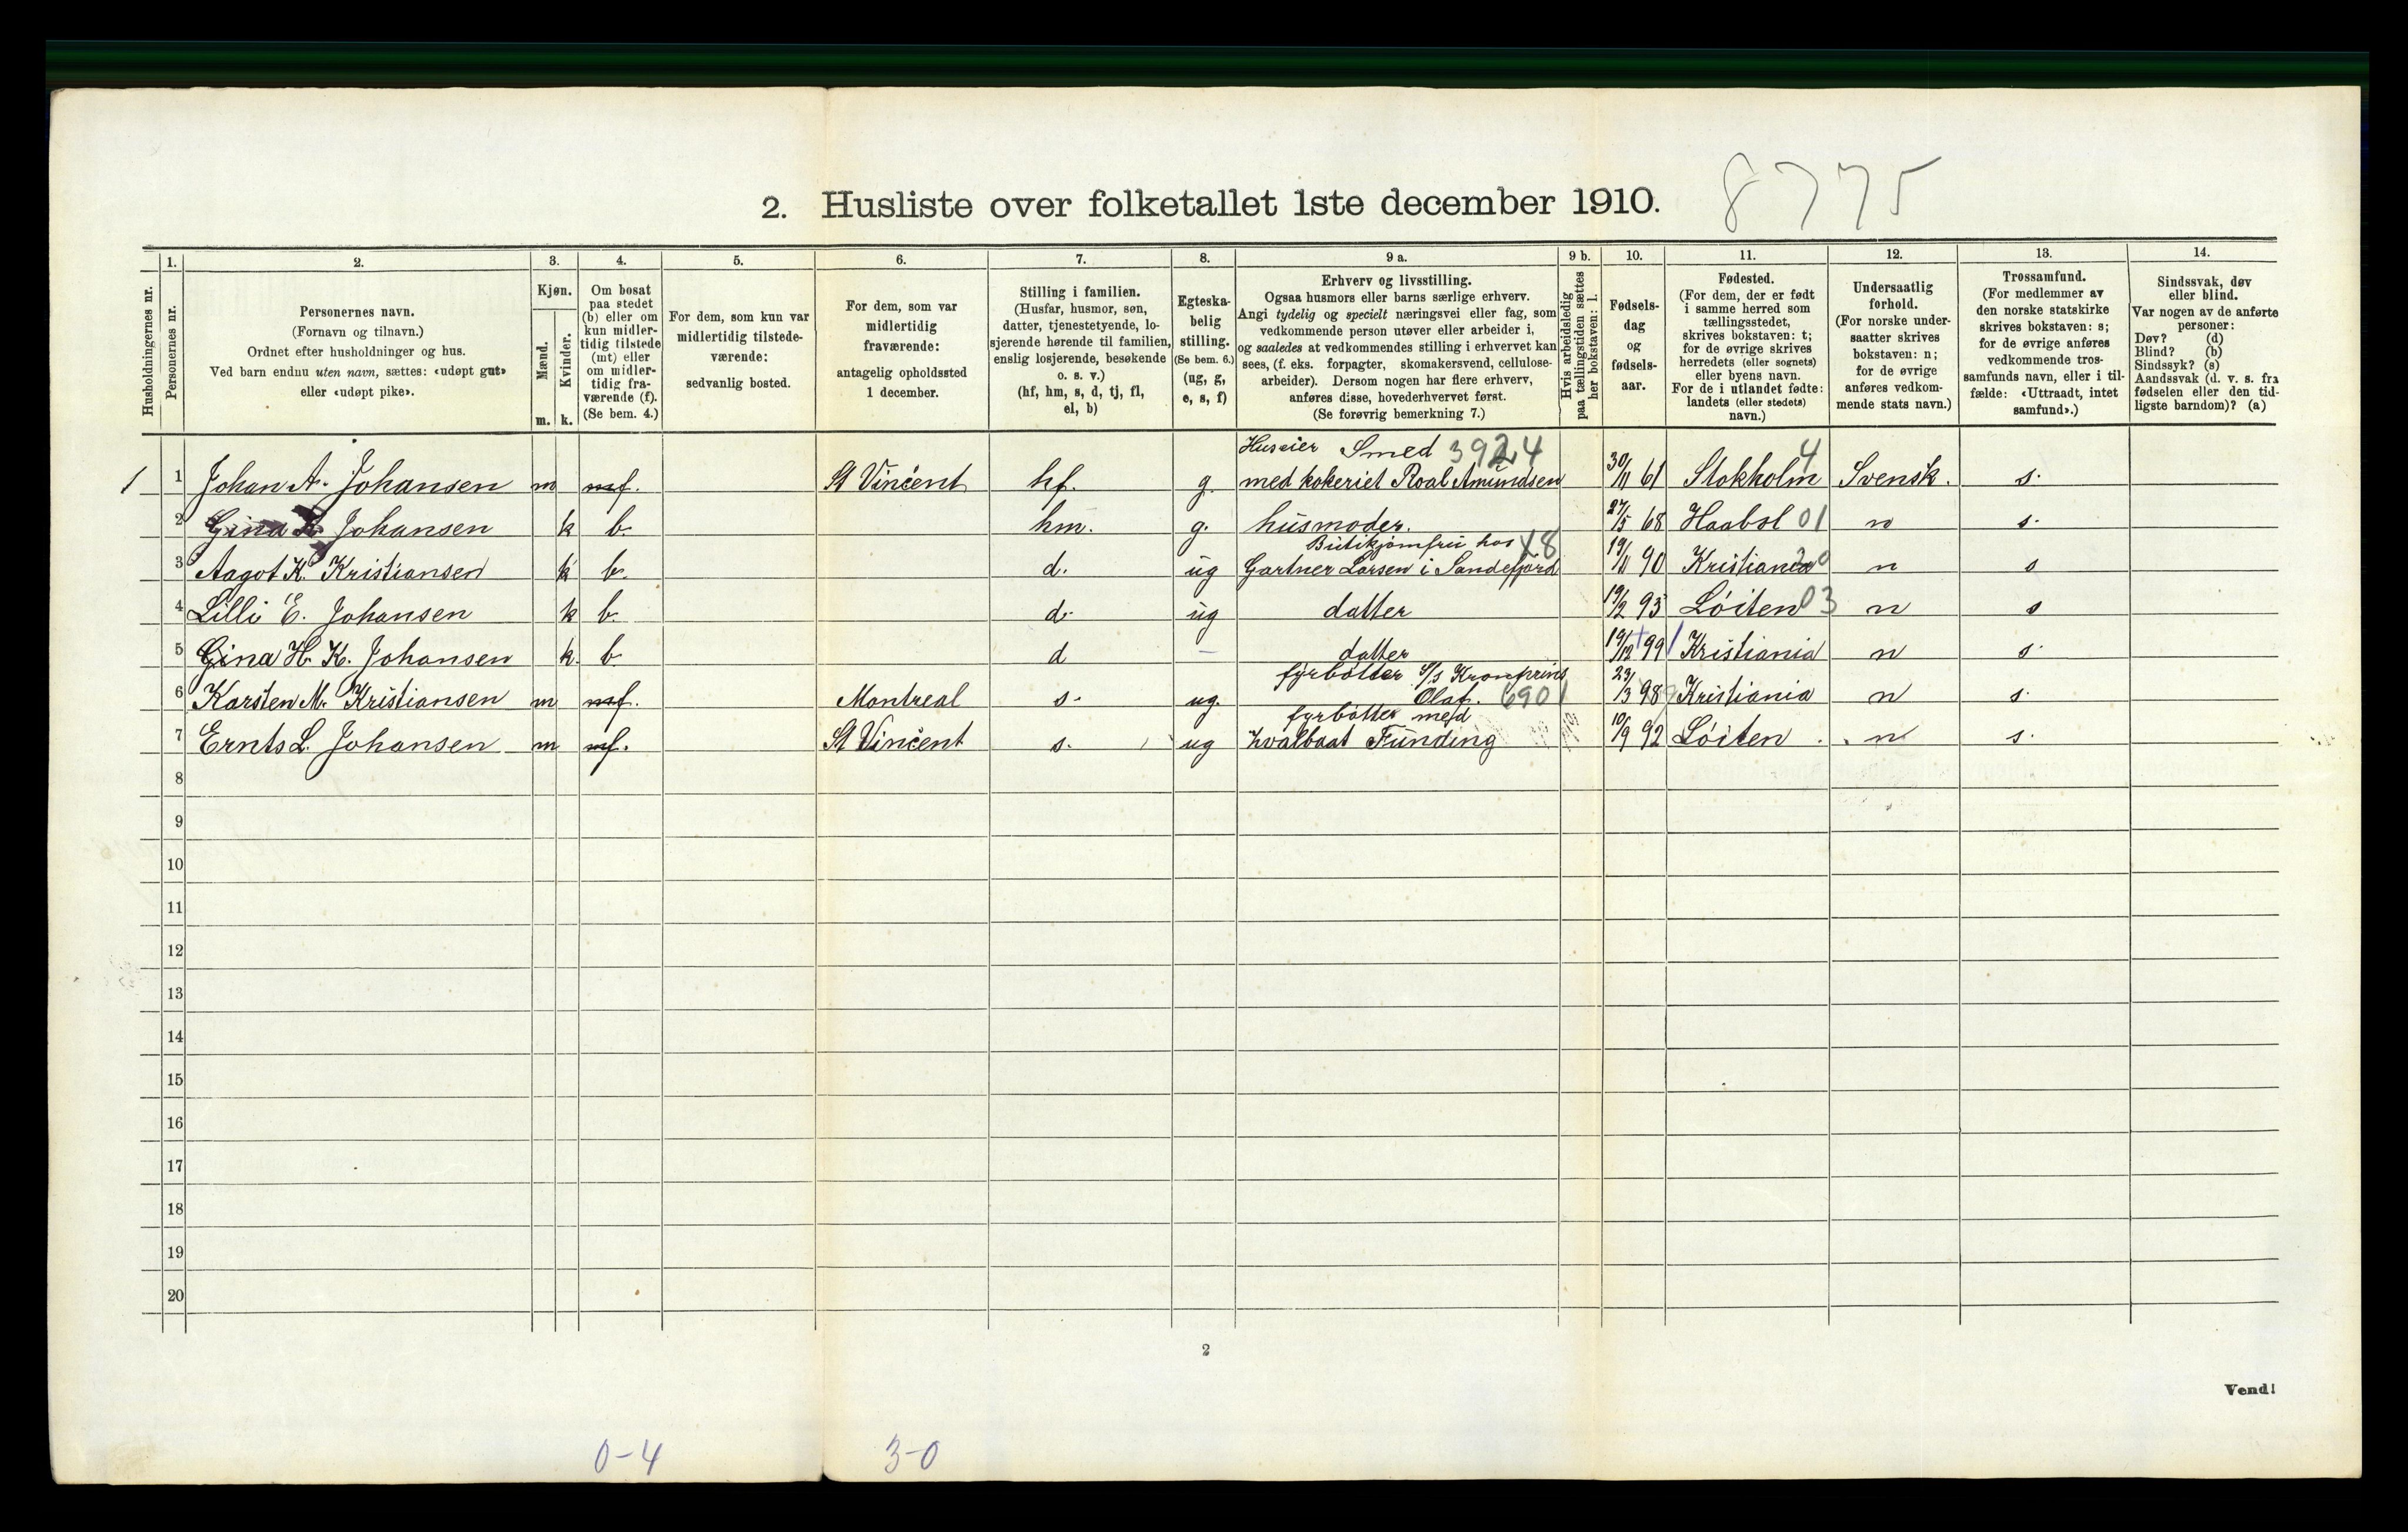 8775
2. Husliste over folketallet 1ste december 1910.
Husholdningernes nr.
1. Personernes nr.
2. Personernes navn. (Fornavn og tilnavn.) Ordnet efter husholdninger og hus. Ved barn endnu uten navn, sættes: «udøpt gut» eller «udøpt pike».
3. Kjøn. Mænd. m. Kvinder. k.
4. Om bosat paa stedet (b) eller om kun midlertidig tilstede (mt) eller om midlertidig fraværende (f). (Se bem. 4.)
5. For dem, som kun var midlertidig tilstedeværende: sedvanlig bosted.
6. For dem, som var midlertidig fraværende: antagelig opholdssted 1 december.
7. Stilling i familien. (Husfar, husmor, søn, datter, tjenestetyende, losjerende hørende til familien, enslig losjerende, besøkende o. s. v.) (hf, hm, s, d, tj, fl, el, b)
8. Egteskabelig stilling. (Se bem. 6.) (ug, g, e, s, f)
9 a. Erhverv og livsstilling. Ogsaa husmors eller barns særlige erhverv. Angi tydelig og specielt næringsvei eller fag, som vedkommende person utøver eller arbeider i, og saaledes at vedkommendes stilling i erhvervet kan sees, (f. eks. forpagter, skomakersvend, cellulosearbeider). Dersom nogen har flere erhverv, anføres disse, hovederhvervet først. (Se forøvrig bemerkning 7.)
9 b. Hvis arbeidsledig paa tællingstiden sættes her bokstaven: l.
10. Fødselsdag og fødselsaar.
11. Fødested. (For dem, der er født i samme herred som tællingsstedet, skrives bokstaven: t; for de øvrige skrives herredets (eller sognets) eller byens navn. For de i utlandet fødte: landets (eller stedets) navn.)
12. Undersaatlig forhold. (For norske undersaatter skrives bokstaven: n; for de øvrige anføres vedkommende stats navn.)
13. Trossamfund. (For medlemmer av den norske statskirke skrives bokstaven: s; for de øvrige anføres vedkommende trossamfunds navn, eller i tilfælde: «Uttraadt, intet samfund».)
14. Sindssvak, døv eller blind. Var nogen av de anførte personer: Døv? (d) Blind? (b) Sindssyk? (s) Aandssvak (d. v. s. fra fødselen eller den tidligste barndom)? (a)
Huseier Smed 3924
1 1 Johan A. Johansen m mf. St Vincent hf. g. med kokeriet Roal Amundsen 30/11 61 Stokholm 4 Svensk. s.
2 Gina Johansen k b. hm. g. husmoder. 27/5 68 Haabol 01 n s.
Butikjomfru hos 48
3 Aagot K. Kristiansen k b. d. ug Gartner Larsen i Sandefjord 19/11 90 Kristiania n s
4 Lilli E. Johansen k b. d. ug datter 19/2 93 Löiten 03 n s
5 Gina H. K. Johansen k. b d – datter 19/12 99 Kristiania n s.
fyrbötter S/s Kronprins
6 Karsten M. Kristiansen m mf. Montreal s. ug. Olaf. 6901 23/3 98 Kristiania n s.
fyrbötter med
7 Ernts L. Johansen m mf. St Vincent s. ug hvalbaat Funding 10/9 92 Löiten n s.
8
9
10
11
12
13
14
15
16
17
18
19
20
2
Vend!
0-4 3-0